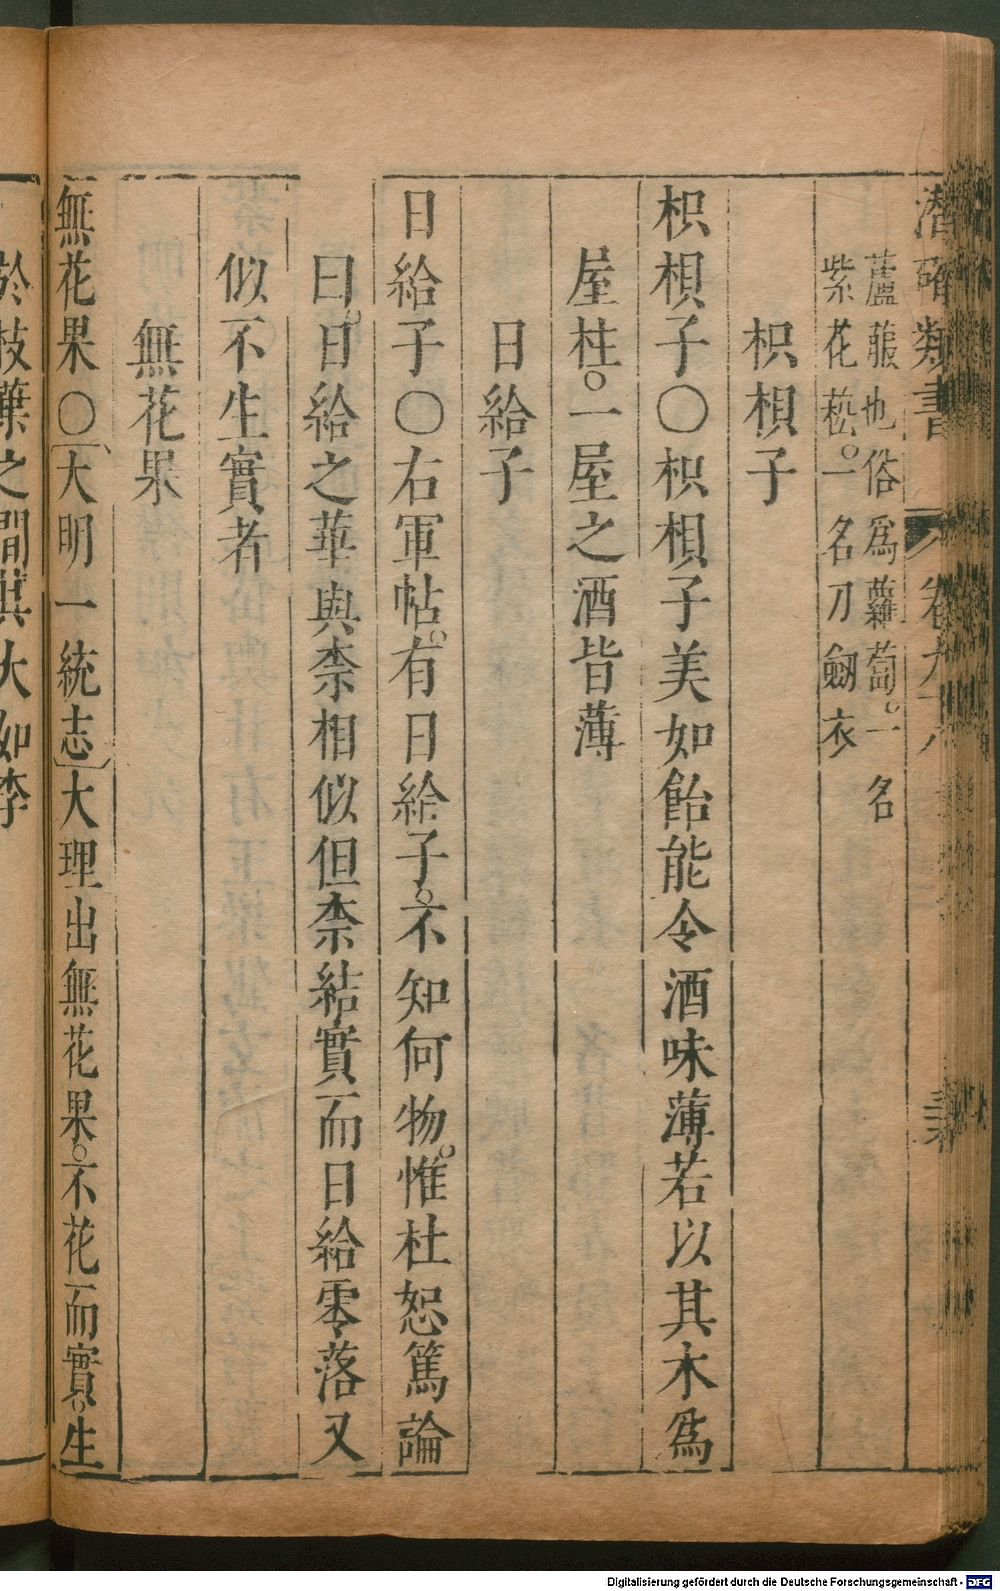 潛確類書 卷九十八
蘆菔也俗爲蘿蔔。一名
紫花菘。一名刀劒衣
枳椇子
枳椇子〇枳椇子美如飴能令酒味薄若以其木爲
屋柱。一屋之酒皆薄
日給子
日給子〇右軍帖。有日給子。不知何物。惟杜恕篤論
曰。日給之華與柰相似但柰結實而日給零落又
似不生實者
無花果
無花果〇〔大明一統志〕大理出無花果。不花而實。生
於枝葉之間其大如李
Digitalisierung gefördert durch die Deutsche Forschungsgemeinschaft - DFG